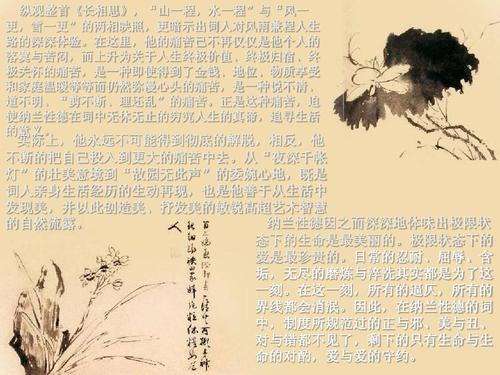 纵观整首《长相思》，“山一程，水一程”与“风一
更，雪一更”的两相映照，更暗示出词人对风雨兼程人生
路的深深体验。在这里，他的痛苦已不再仅仅是他个人的
落寞与苦闷，而上升为关于人生终极价值、终极归宿、终
极关怀的痛苦，是一种即使得到了金钱、地位、物质享受
和家庭温暖等等而仍然弥漫心头的痛苦，是一种说不清、
道不明、“剪不断，理还乱”的痛苦。正是这种痛苦，迫
使纳兰性德在词中无休无止的穷究人生的真谛，追寻生活
的意义。
实际上，他永远不可能得到彻底的解脱，相反，他
不断的把自己投入到更大的痛苦中去。从“夜深千帐
灯”的壮美意境到“故园无此声”的委婉心地，既是
词人亲身生活经历的生动再现，也是他善于从生活中
发现美，并以此创造美、抒发美的敏锐高超艺术智慧
的自然流露。
纳兰性德因之而深深地体味出极限状
态下的生命是最美丽的。极限状态下的
爱是最珍贵的。日常的忍耐、屈辱、含
垢，无尽的磨炼与牵洗其实都是为了这
一刻。在这一刻，所有的
界线都会消泯。因此，在纳兰性德的词
中，制度所规范过的正与邪、美与丑、
对与错都不见了，剩下的只有生命与生
命的对酌，爱与爱的守约。